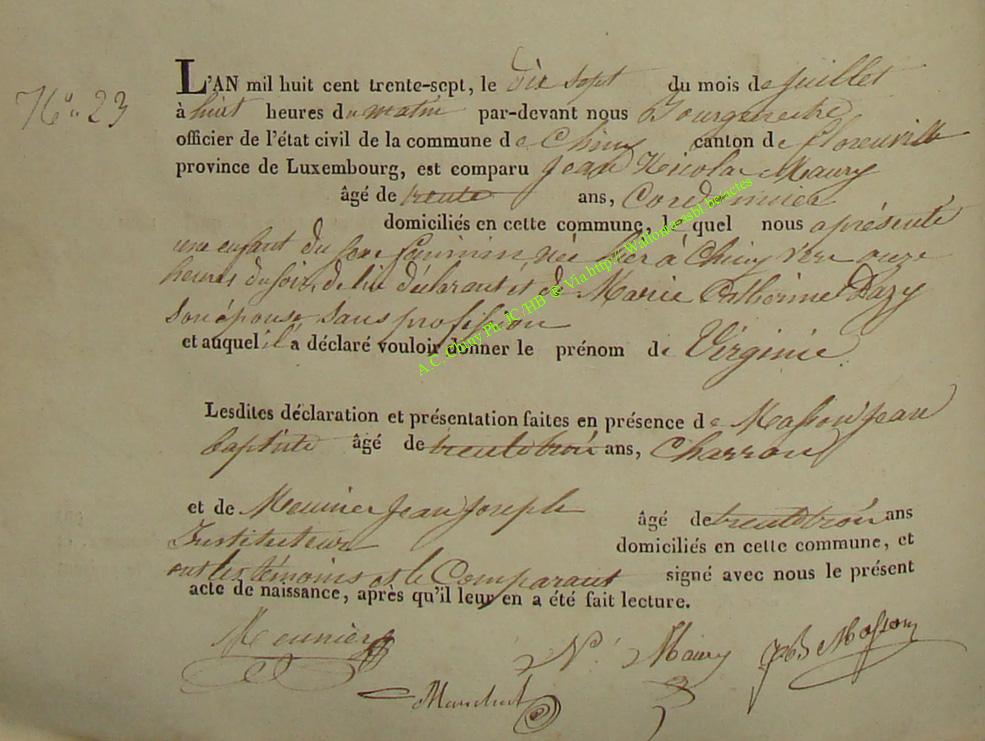 N° 23
L'AN mil huit cent trente-sept, le dix sept du mois de juillet
à huit heures du matin par-devant nous Bourgmestre
officier de l'état civil de la commune de Chiny canton de florenville
province de Luxembourg, est comparu Jean Nicolas Maury
âgé de trente ans, Cordonnier
domiciliés en cette commune, lequel nous a présenté
une enfant du sexe féminin née hier à Chiny vers onze
heures du soir, de lui déclarant et de Marie Catherine Dazy
son épouse sans profession
et auquel il a déclaré vouloir donner le prénom de Virginie
Lesdites déclaration et présentation faites en présence de Masson jean
baptiste âgé de trente trois ans, Charron
et de Meunier jean joseph âgé de trente trois ans
Instituteur domiciliés en cette commune, et
ont les témoins et le Comparant signé avec nous le présent
acte de naissance, après qu'il leur en a été fait lecture.
Meunier N. Maury JB Masson
A.C. Chiny Ph. JC/HB @ Via http://Wallonia asbl be/actes